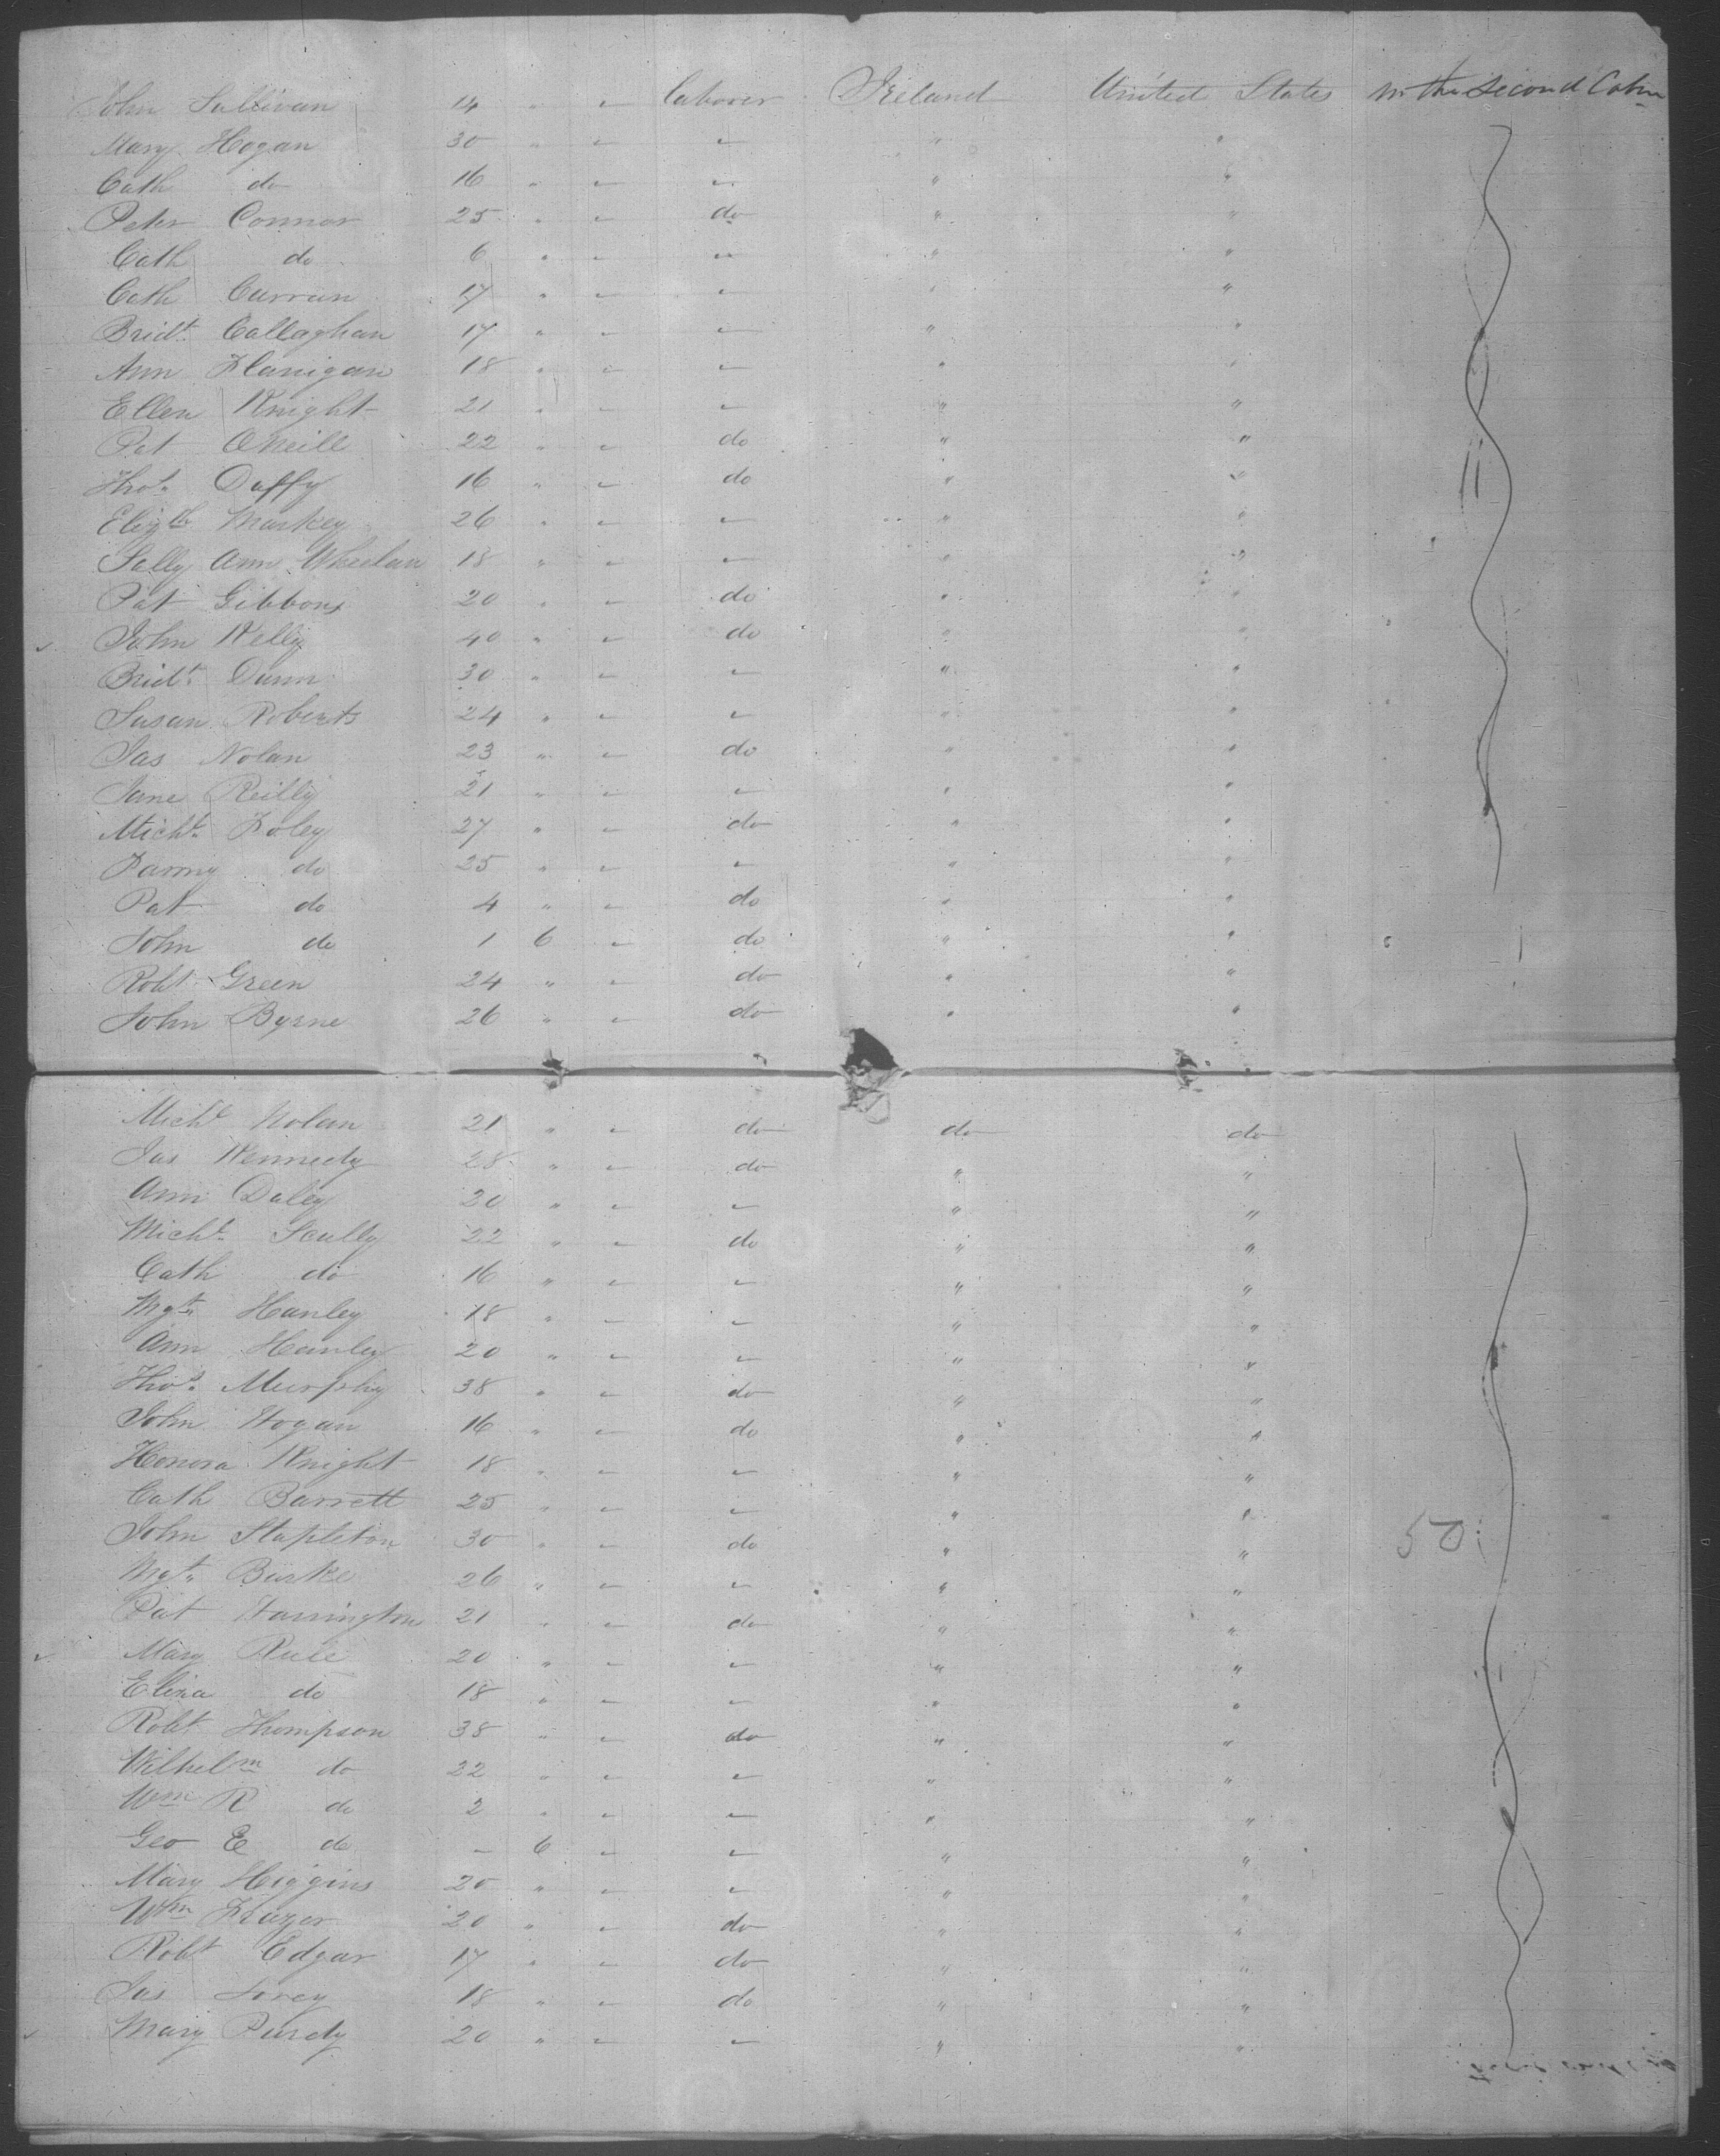 John Sullivan 14 " " Laborer Ireland United States in the second Cabin
Mary Hogan 30 " " " " "
Cath do 16 " " " " "
Peter Connor 25 " " do " "
Cath do 6 " " " " "
Cath Curran 17 " " " " "
Bridt. Callaghan 17 " " " " "
Ann Flanigan 18 " " " " "
Ellen Knight 21 " " " " "
Pat ONeill 22 " " do " "
Thos. Duffy 16 " " do " "
Elizth Markey 26 " " " " "
Sally Ann Wheelan 18 " " " " "
Pat Gibbons 20 " " do " "
John Kelly 40 " " do " "
Bridt. Dunn 30 " " " " "
Susan Roberts 24 " " " " "
Jas Nolan 23 " " do " "
Jane Reilly 21 " " " " "
Michl. Foley 27 " " do " "
Fanny do 25 " " " " "
Pat do 4 " " do " "
John do 1 6 " do " "
Robt Green 24 " " do " "
John Byrne 26 " " do " "
Michl Nolan 21 " " do do do
Jas Kennedy 28 " " do " "
Ann Daley 20 " " " " "
Michl. Scully 22 " " do " "
Cath do 16 " " " " "
Mgt. Hanley 18 " " " " "
Ann Hanley 20 " " " " "
Thos. Murphy 38 " " do " "
John Hogan 16 " " do " "
Honora Knight 18 " " " " "
Cath Barrett 25 " " " " "
John Stapleton 30 " " do " " 50
Mgt. Burke 26 " " " " "
Pat Harrington 21 " " do " "
Mary Rule 20 " " " " "
Eliza do 18 " " " " "
Robt Thompson 38 " " do " "
Wilhelm do 22 " " " " "
Wm R do 2 " " " " "
Geo E do - 6 " " " "
Mary Higgins 20 " " " " "
Wm Frazer 20 " " do " "
Robt Edgar 17 " " do " "
Jas 18 " " do " "
Mary Purdy 20 " " " " "